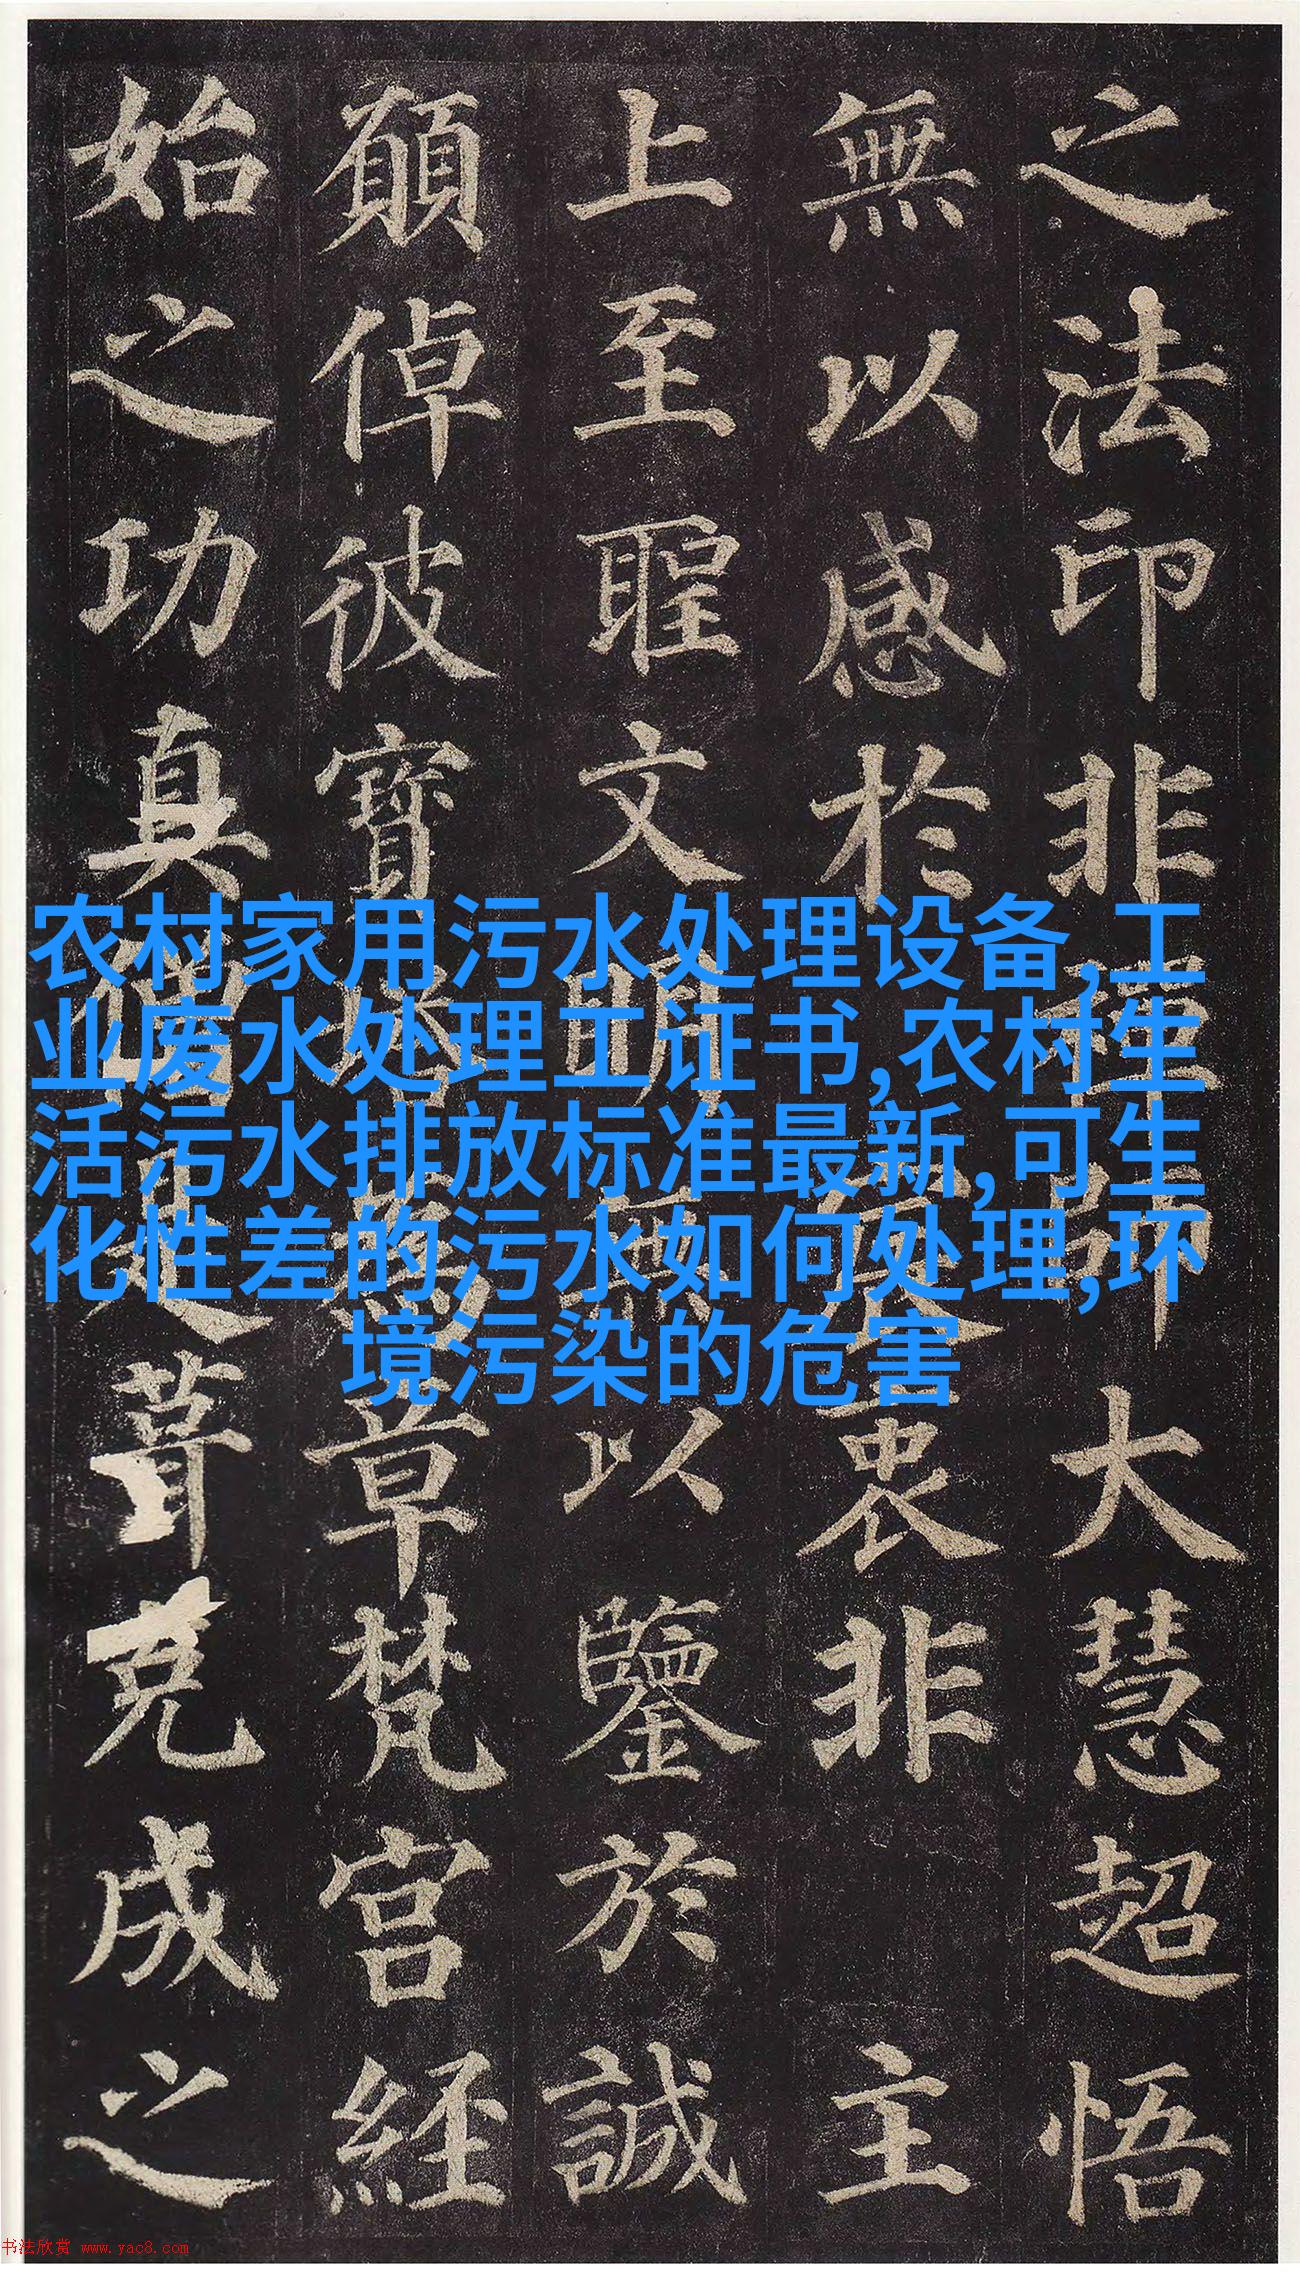 之法印非禪師大慧超悟
無以感於宸衷非主
上至聖文明無以鑒於誠
願倬彼寶塔為章梵宮經
始之功真僧是葺克成之
农村家用污水处理设备,工
业废水处理工证书,农村生
活污水排放标准最新,可生
化性差的污水如何处理,环
境污染的危害
书法欣赏 www.yac8.com